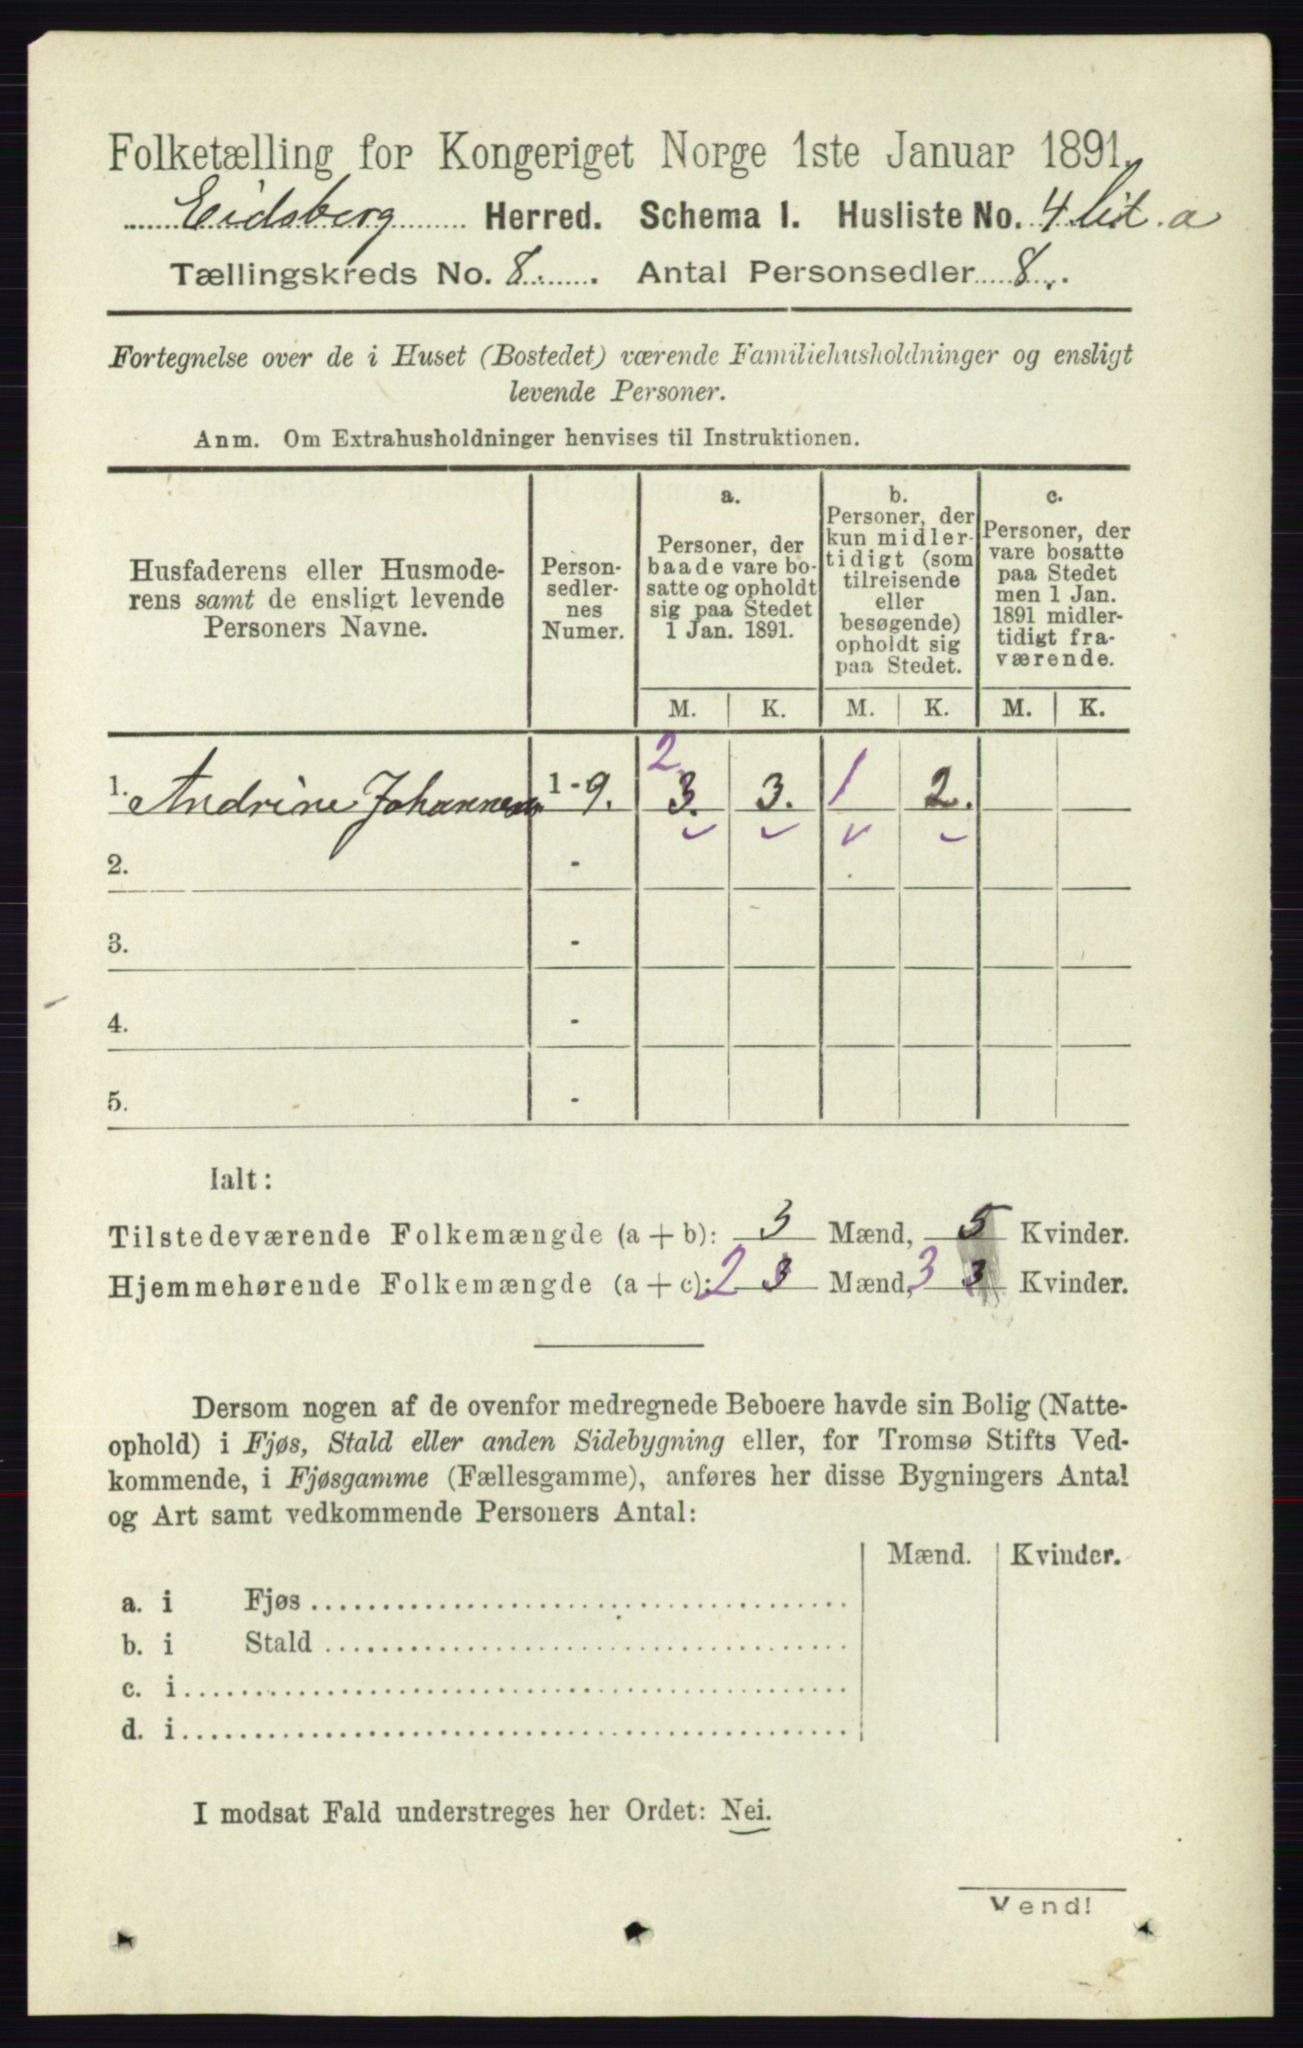 Folketælling for Kongeriget Norge 1ste Januar 1891.
Eidsberg Herred. Schema I. Husliste No. 4 lit a
Tællingskreds No. 8. Antal Personsedler 8.
Fortegnelse over de i Huset (Bostedet) værende Familiehusholdninger og ensligt
levende Personer.
Anm. Om Extrahusholdninger henvises til Instruktionen.
Husfaderens eller Husmode-
rens samt de ensligt levende
Personers Navne.
Person-
sedler-
nes
Numer.
a.
Personer, der
baade vare bo-
satte og opholdt
sig paa Stedet
1 Jan. 1891.
b.
Personer, der
kun midler-
tidigt (som
tilreisende
eller
besøgende)
opholdt sig
paa Stedet.
c.
Personer, der
vare bosatte
paa Stedet
men 1 Jan.
1891 midler-
tidigt fra-
værende.
M. K. M. K. M. K.
2
1. Andrine Johannesen 1-9. 3. 3. 1 2.
2. -
3. -
4. -
5. -
Ialt:
Tilstedeværende Folkemængde (a + b): 3 Mænd, 5 Kvinder.
Hjemmehørende Folkemængde (a + c): 2 3 Mænd, 3 3 Kvinder.
Dersom nogen af de ovenfor medregnede Beboere havde sin Bolig (Natte-
ophold) i Fjøs, Stald eller anden Sidebygning eller, for Tromsø Stifts Ved-
kommende, i Fjøsgamme (Fællesgamme), anføres her disse Bygningers Antal
og Art samt vedkommende Personers Antal:
Mænd. Kvinder.
a. i Fjøs
b. i Stald
c. i
d. i
I modsat Fald understreges her Ordet: Nei.
Vend!